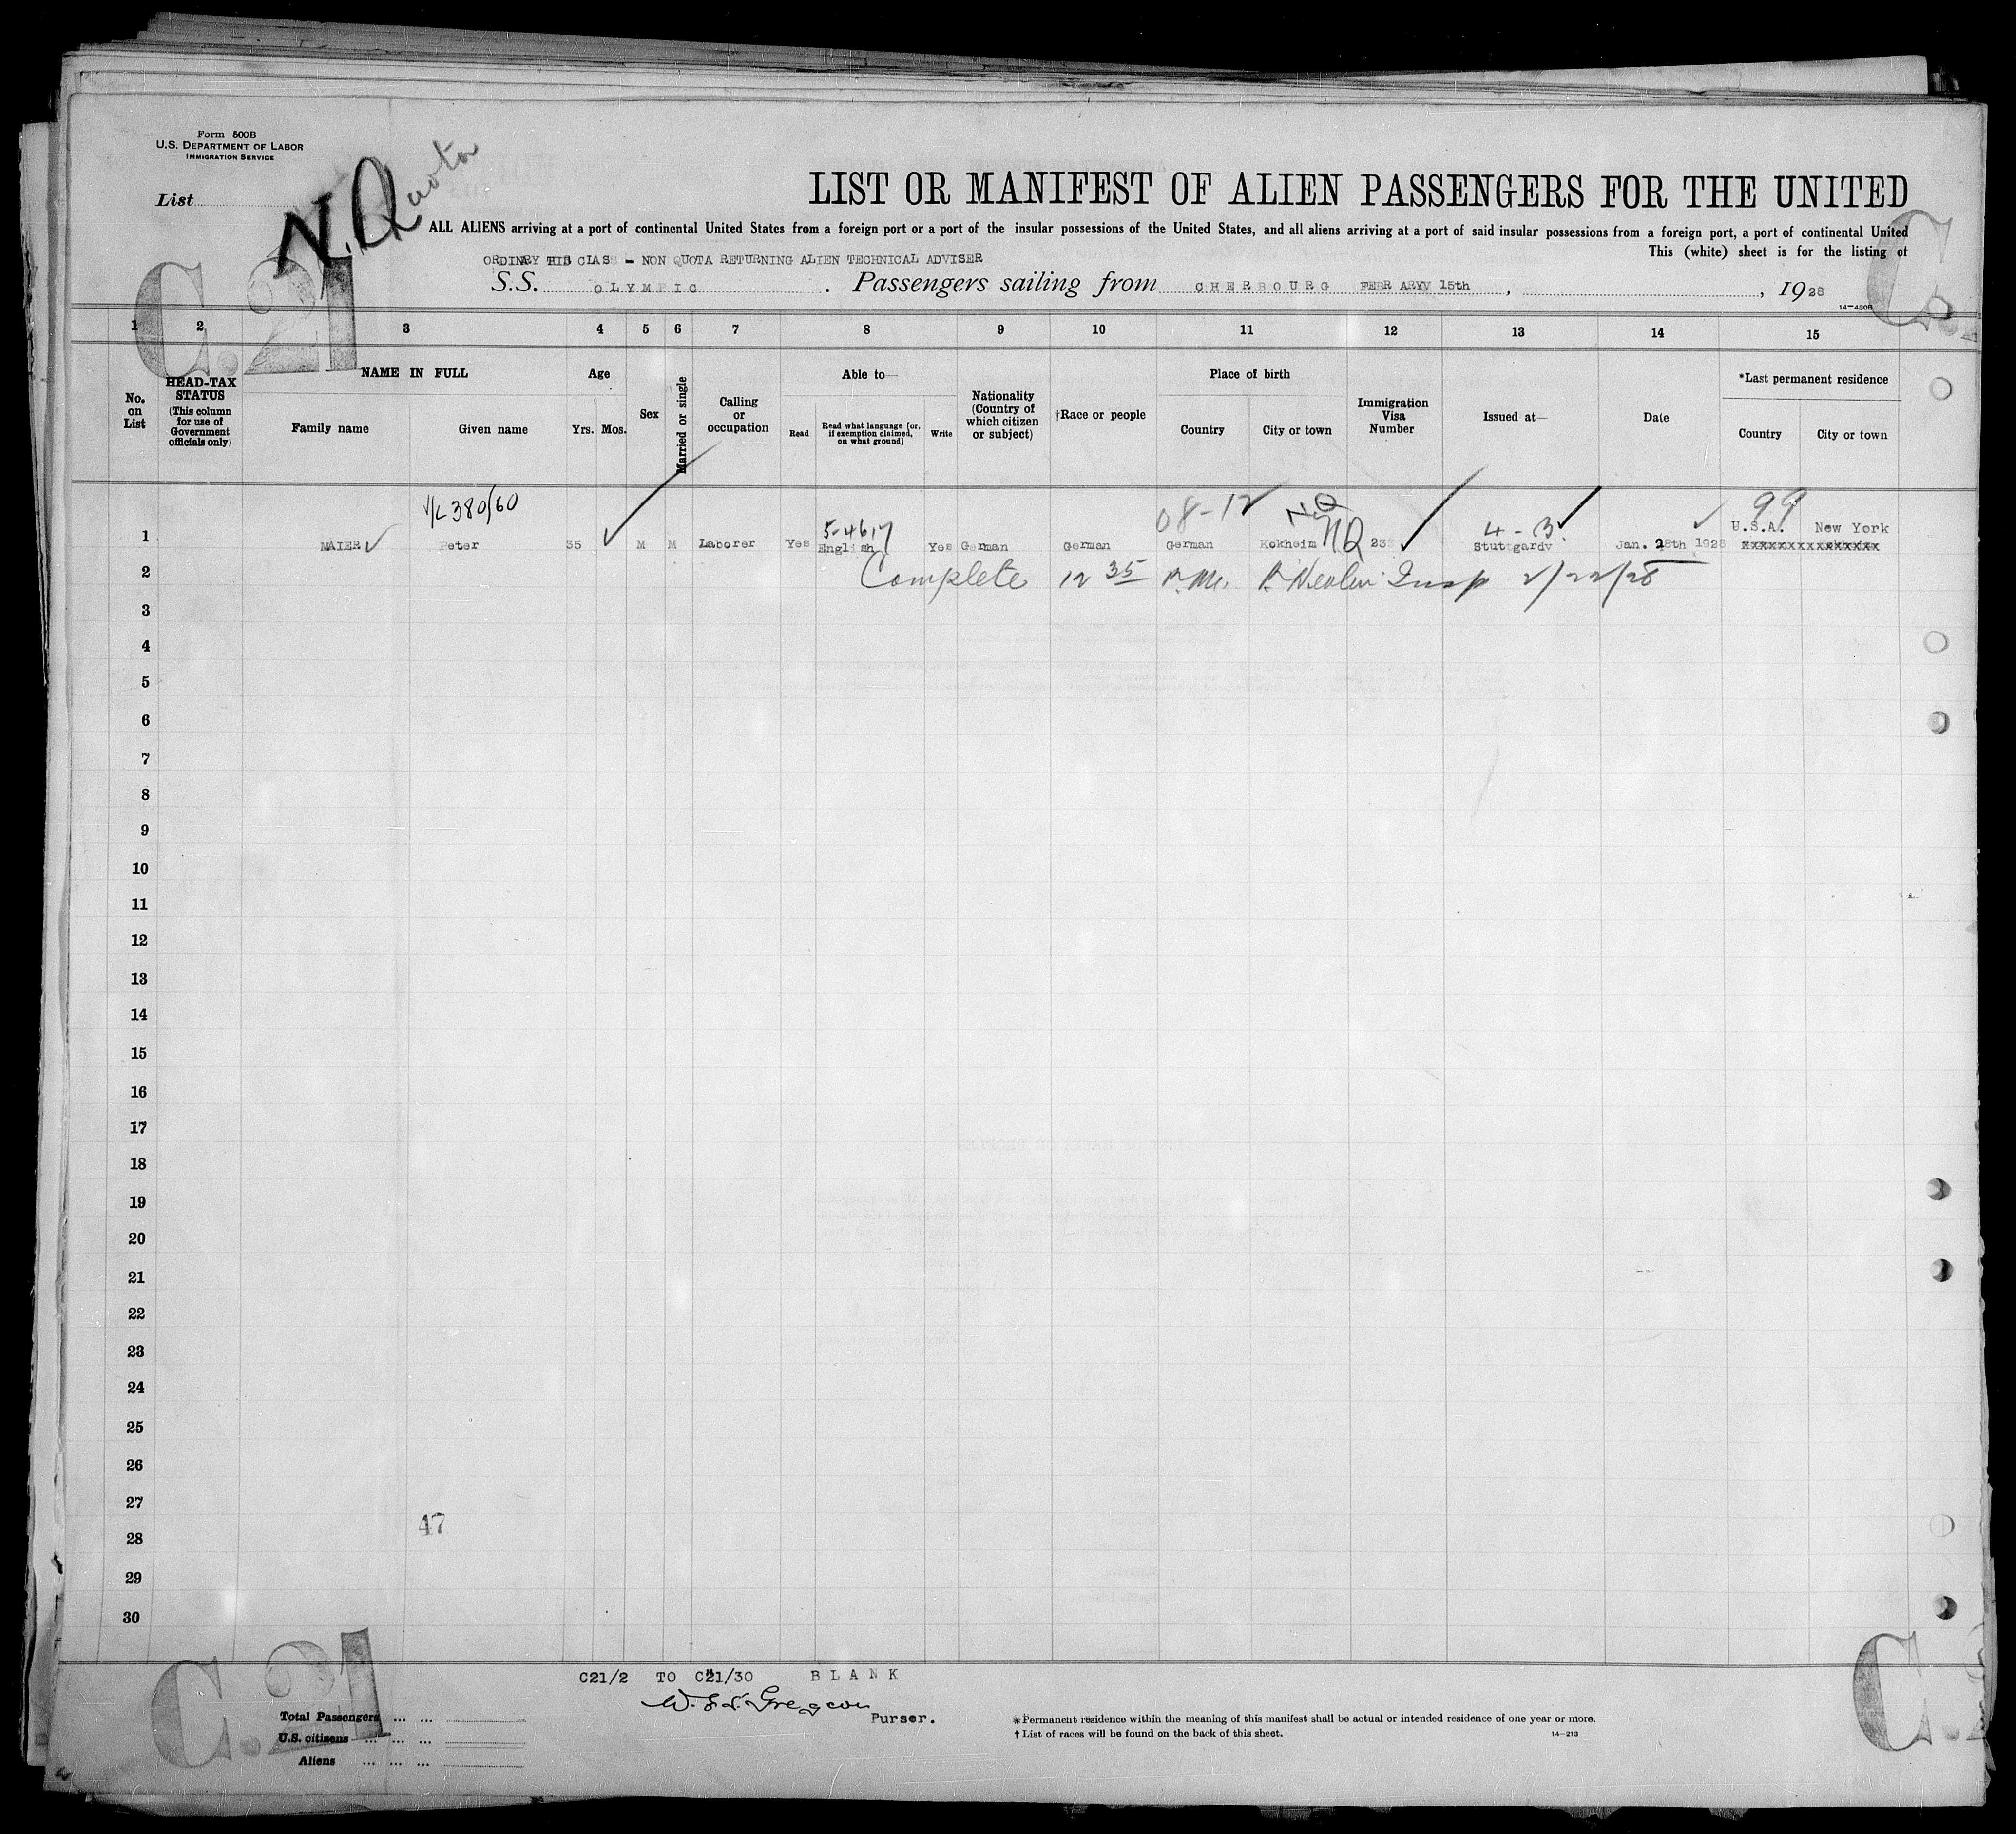 Form 500B
U.S. DEPARTMENT OF LABOR
IMMIGRATION SERVICE
List
N.Quota
LIST OR MANIFEST OF ALIEN PASSENGERS FOR THE UNITED
ALL ALIENS arriving at a port of continental United States from a foreign port or a port of the insular possessions of the United States, and all aliens arriving at a port of said insular possessions from a foreign port, a port of continental United
This (white) sheet is for the listing of
ORDINARY CLASS - NON QUOTA RETURNING ALIEN TECHNICAL ADVISER
S.S. OLYMPIC. Passengers sailing from CHERBOURG FEBR ARYV 15th, , 1928
14-4308
C.21
C.
1 2 3 4 5 6 7 8 9 10 11 12 13 14 15
No. on List
HEAD-TAX STATUS
(This column for use of Government officials only)
NAME IN FULL
Family name Given name
Age
Yrs. Mos.
Sex
Married or single
Calling or occupation
Able to—
Read
Read what language [or, if exemption claimed, on what ground]
Write
Nationality (Country of which citizen or subject)
†Race or people
Place of birth
Country City or town
Immigration Visa Number
Issued at—
Date
*Last permanent residence
Country City or town
V/L 380/60 5-4617 08-12 NQ 4-3 99
U.S.A. New York
1 MAIER Peter 35 M M Laborer Yes English Yes German German German Kokheim NQ 233 Stuttgardv Jan. 28th 1928 xxxxxxxxxxxxxxxx
2 Complete 12 35 P.M. Insp 2/22/28
3
4
5
6
7
8
9
10
11
12
13
14
15
16
17
18
19
20
21
22
23
24
25
26
27
47
28
29
30
C.21
C.
C21/2 TO C21/30 BLANK
Purser.
Total Passengers ... ...
U.S. citizens ... ... ...
Aliens ... ... ...
* Permanent residence within the meaning of this manifest shall be actual or intended residence of one year or more.
† List of races will be found on the back of this sheet.
14-213